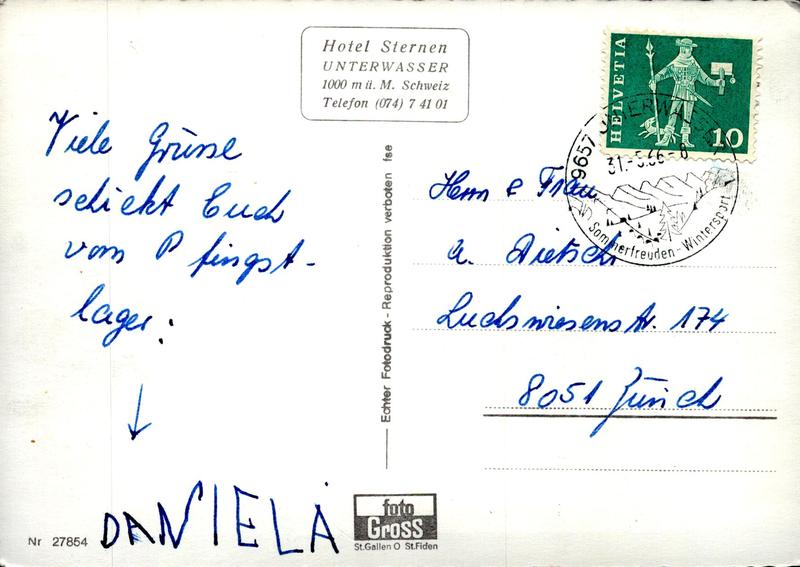 Hotel Sternen
UNTERWASSER
1000 m ü. M. Schweiz
Telefon (074) 7 41 01
HELVETIA
10
9657 UNTERWASSER
31.-5.66-8
Sommerfreuden-Wintersport
Viele Grüsse
schickt Euch
vom Pfingst-
lager:
DANIELA
Herrn & Frau
A. Dietschi
Luchswiesenstr. 174
8051 Zürich
Echter Fotodruck - Reproduktion verboten fse
Nr 27854
foto
Gross
St.Gallen O St.Fiden